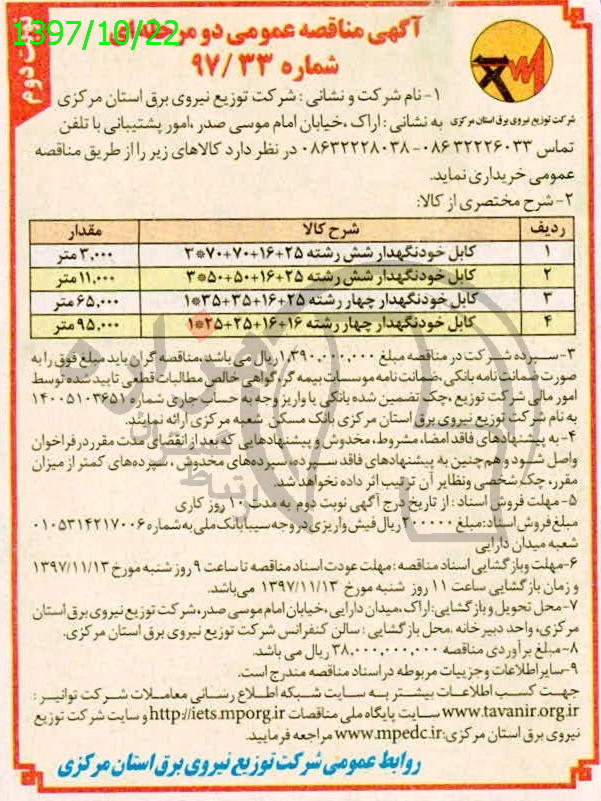 1397/10/22
نوبت دوم
آگهی مناقصه عمومی دو مرحله‌ای
شماره ۹۷/۳۳
شرکت توزیع نیروی برق استان مرکزی
۱- نام شرکت و نشانی : شرکت توزیع نیروی برق استان مرکزی
به نشانی : اراک ،خیابان امام موسی صدر ،امور پشتیبانی با تلفن
تماس ۰۸۶۳۲۲۲۶۰۳۳ - ۰۸۶۳۲۲۲۸۰۳۸ در نظر دارد کالاهای زیر را از طریق مناقصه
عمومی خریداری نماید.
۲- شرح مختصری از کالا:
ردیف شرح کالا مقدار
۱ کابل خودنگهدار شش رشته ۲۵+۱۶+۷۰+۷۰*۳ ۳,۰۰۰ متر
۲ کابل خودنگهدار شش رشته ۲۵+۱۶+۵۰+۵۰*۳ ۱۱,۰۰۰ متر
۳ کابل خودنگهدار چهار رشته ۲۵+۱۶+۳۵+۳۵*۱ ۶۵,۰۰۰ متر
۴ کابل خودنگهدار چهار رشته ۱۶+۱۶+۲۵+۲۵*۱ ۹۵,۰۰۰ متر
۳- سپرده شرکت در مناقصه مبلغ ۱,۳۹۰,۰۰۰,۰۰۰ ریال می باشد ،مناقصه گران باید مبلغ فوق را به
صورت ضمانت نامه بانکی ،ضمانت نامه موسسات بیمه گر، گواهی خالص مطالبات قطعی تایید شده توسط
امور مالی شرکت توزیع ،چک تضمین شده بانکی یا واریز وجه به حساب جاری شماره ۱۴۰۰۵۱۰۳۶۵۱
به نام شرکت توزیع نیروی برق استان مرکزی بانک مسکن شعبه مرکزی ارائه نمایند.
۴- به پیشنهادهای فاقد امضا، مشروط، مخدوش و پیشنهادهایی که بعد از انقضای مدت مقرر در فراخوان
واصل شود و هم چنین به پیشنهادهای فاقد سپرده، سپرده‌های مخدوش ، سپرده‌های کمتر از میزان
مقرر، چک شخصی و نظایر آن ترتیب اثر داده نخواهد شد.
۵- مهلت فروش اسناد : از تاریخ درج آگهی نوبت دوم به مدت ۱۰ روز کاری
مبلغ فروش اسناد: مبلغ ۲۰۰۰۰۰ ریال فیش واریزی در وجه سیبا بانک ملی به شماره ۰۱۰۵۳۱۴۲۱۷۰۰۶
شعبه میدان دارایی
۶- مهلت و بازگشایی اسناد مناقصه : مهلت عودت اسناد مناقصه تا ساعت ۹ روز شنبه مورخ ۱۳۹۷/۱۱/۱۳
و زمان بازگشایی ساعت ۱۱ روز شنبه مورخ ۱۳۹۷/۱۱/۱۳ می‌باشد.
۷- محل تحویل و بازگشایی: اراک، میدان دارایی ،خیابان امام موسی صدر، شرکت توزیع نیروی برق استان
مرکزی، واحد دبیرخانه .محل بازگشایی : سالن کنفرانس شرکت توزیع نیروی برق استان مرکزی.
۸- مبلغ برآوردی مناقصه ۳۸,۰۰۰,۰۰۰,۰۰۰ ریال می باشد.
۹- سایر اطلاعات و جزییات مربوطه در اسناد مناقصه مندرج است.
جهت کسب اطلاعات بیشتر به سایت شبکه اطلاع رسانی معاملات شرکت توانیر :
www.tavanir.org.ir سایت پایگاه ملی مناقصات http://iets.mporg.ir و سایت شرکت توزیع
نیروی برق استان مرکزی: www.mpedc.ir مراجعه فرمایید.
روابط عمومی شرکت توزیع نیروی برق استان مرکزی